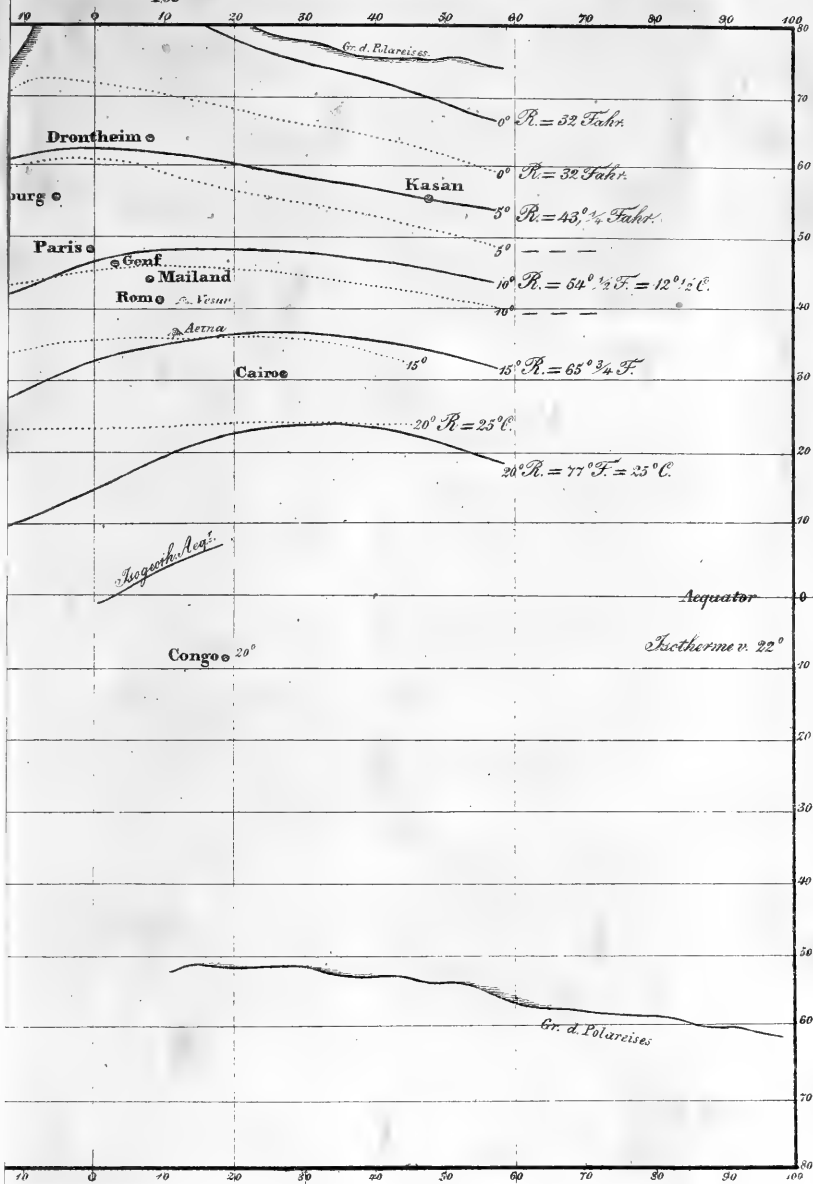 10 0 10 20 30 40 50 60 70 80 90 100
80
Gr. d. Polareises.
70
0° R. = 32 Fahr.
Drontheim
60
0° R. = 32 Fahr.
Kasan
burg
5° R. = 43,° 1/4 Fahr.
50
Paris
5° — — —
Genf
Mailand
10° R. = 54° 1/2 F. = 12° 1/2 C.
Rom
Vesuv
40
10° — — —
Aetna
15°
15° R. = 65° 3/4 F.
Cairo
30
20° R = 25° C.
20
20° R. = 77° F. = 25° C.
10
Isogeoth. Aeqr.
Aequator
0
Isotherme v. 22°
Congo 20°
10
20
30
40
50
60
Gr. d. Polareises
70
80
10 0 10 20 30 40 50 60 70 80 90 100